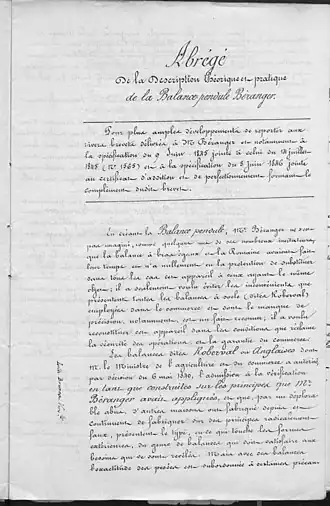 Abrégé
De la Description théorique et pratique
de la Balance pendule Béranger.
Pour plus amples développements se reporter aux
divers brevets délivrés à Mr Béranger et notamment à
la spécification du 9 Juin 1845 jointe à celui du 18 juillet
1845 et à la spécification du 5 Juin 1846 jointe
au certificat d'addition et de perfectionnement formant le
complément dudit brevet.
En créant la Balance pendule, Mr. Béranger ne s'est
pas imaginé, comme quelques uns de ses nombreux imitateurs
que la balance à bras égaux et la Romaine avaient fait
leur temps et n'a nullement eu la prétention de substituer
dans tous les cas cet appareil à ceux ayant le même
objet; il a seulement voulu éviter les inconvénients que
présentent toutes les balances à socle (dites Roberval)
employées dans le commerce et dont le manque de
précision, notamment, est un fait reconnu; il a voulu
reconstituer cet appareil dans les conditions que réclame
la sécurité des opérations et la garantie du commerce.
Les balances dites Roberval ou Anglaises dont
M. le Ministre de l'agriculture et du commerce a autorisé
par décision du 6 mai 1850, l'admission à la vérification
en tant que construites sur les principes que Mr
Béranger avait appliqués, en ce que, par un déplorable
abus, d'autres maisons ont fabriqué depuis et
continuent de fabriquer sur des principes radicalement
faux, présentent le type, en ce qui touche les formes
extérieures, du genre de balances qui doit satisfaire aux
besoins que je viens
Mais avec ces balances
l'exactitude des pesées est subordonnée à certaines précau-